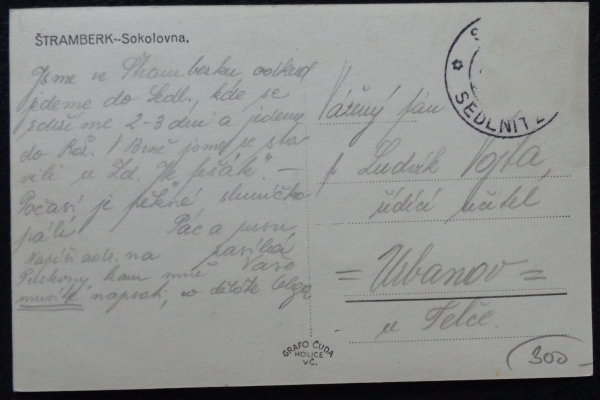 ŠTRAMBERK--Sokolovna.
Jsme ve Štramberku odkud
jedeme do Sedl. kde se
zdržíme 2-3 dni a jedeme
do Rož. V Brně jsme se sta-
vili u Zd.
Počasí je pěkné sluníčko
pálí. Pác a pusu,
Napíši adr. na
kam mně Vaše
musíte napsat, co děláte Olga
SEDLNITZ
Vážený pán
p Ludvík Vojta,
řídící učitel
= Urbanov =
u Telče.
GRAFO ČUDA
HOLICE
VČ.
300